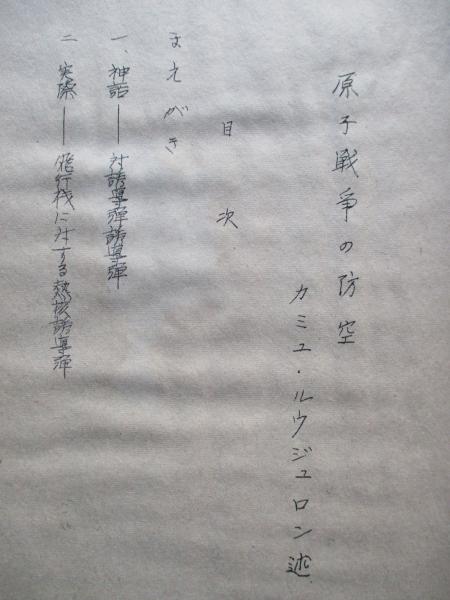 原子戦争の防空
カミユ・ルウジュロン述
目次
まえがき
一、神話――対誘導弾誘導弾
二 実際――飛行機に対する熱核誘導弾